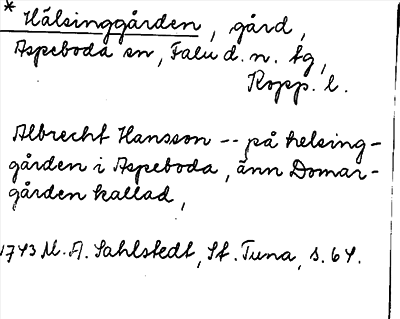 * Hälsinggården, gård,
Aspeboda sn, Falu d. n. tg,
Kopp. l.
Albrecht Hansson -- på helsing-
gården i Aspeboda, änn Domar-
gården kallad,
1743 M. A. Sahlstedt, St. Tuna, s. 64.